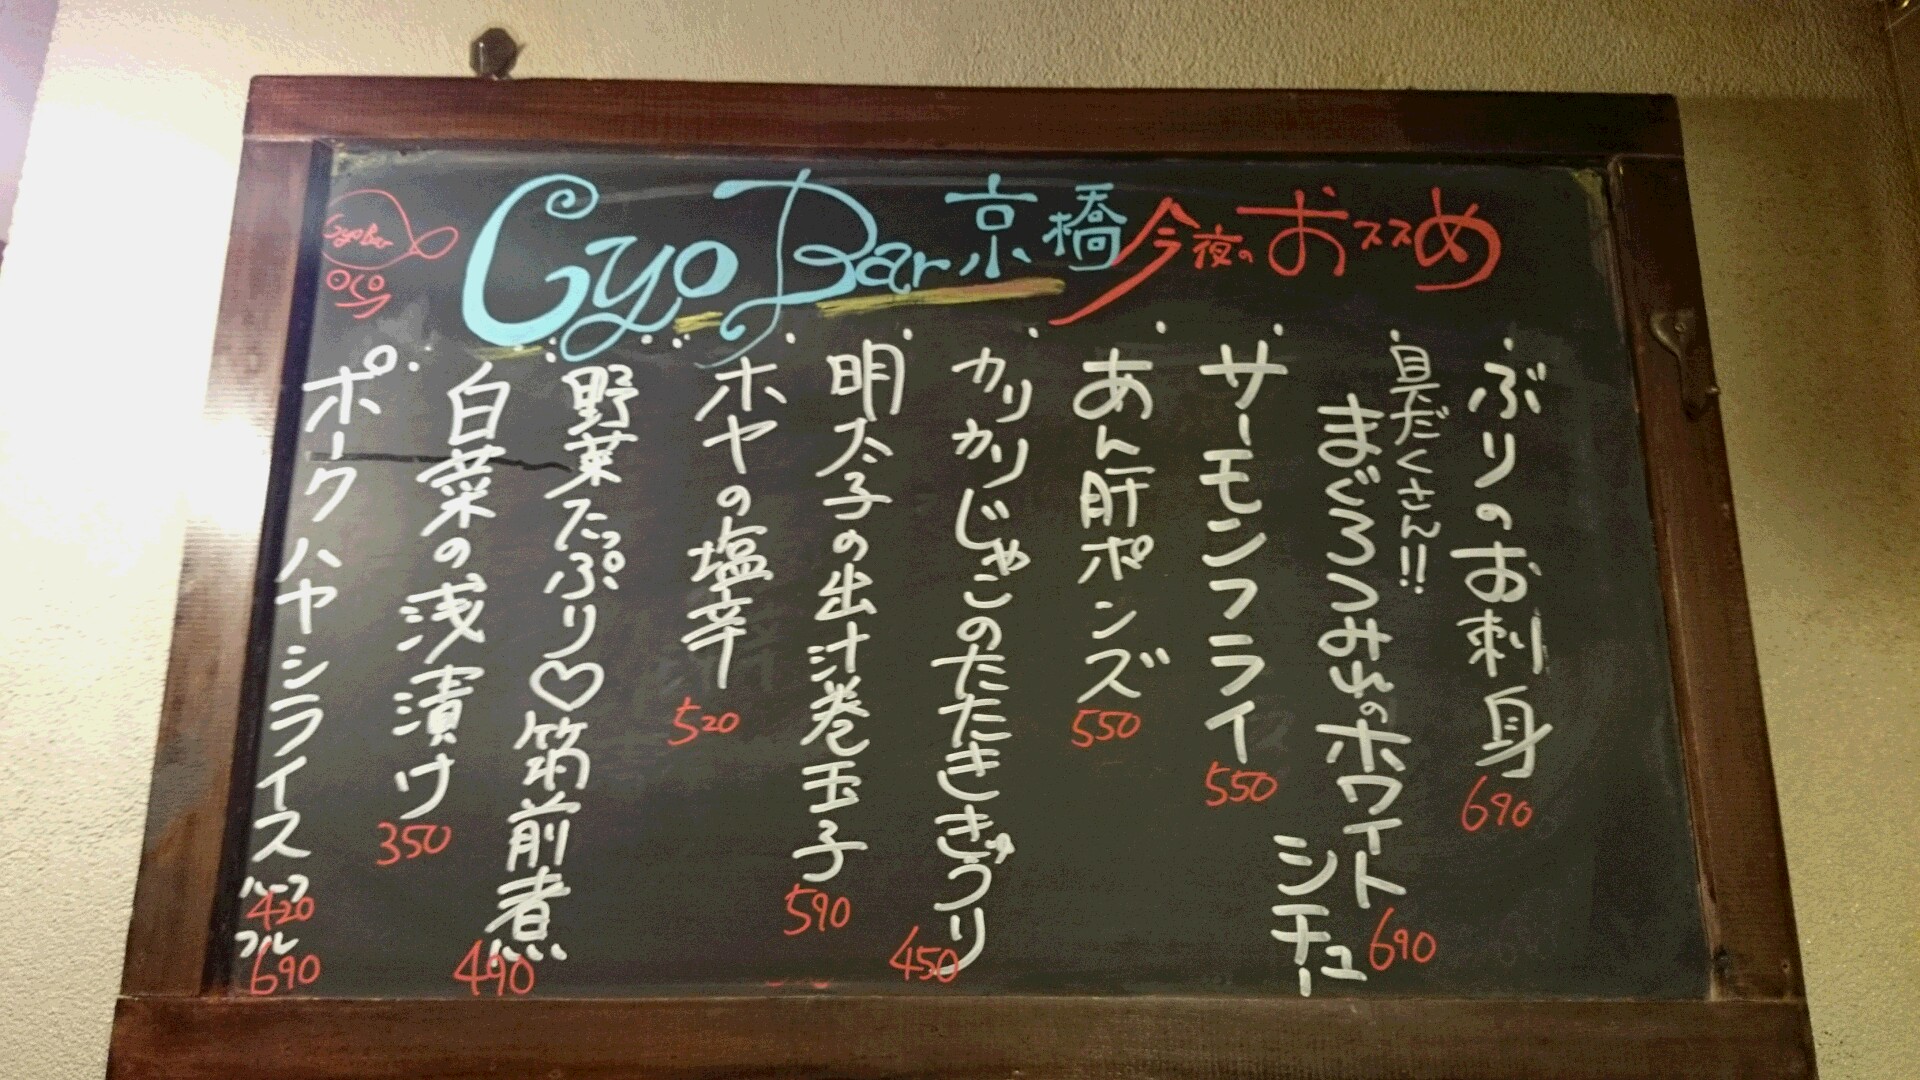 GyoBar
Gyo Bar 京橋 今夜のおススめ
ぶりのお刺身 690
具だくさん!!
まぐろつみれのホワイト
シチュー 690
サーモンフライ 550
あん肝ポンズ 550
カリカリじゃこのたたききゅうり 450
明太子の出汁巻玉子 590
ホヤの塩辛 520
野菜たっぷり♡筑前煮 490
白菜の浅漬け 350
ポークハヤシライス
ハーフ 420
フル 690